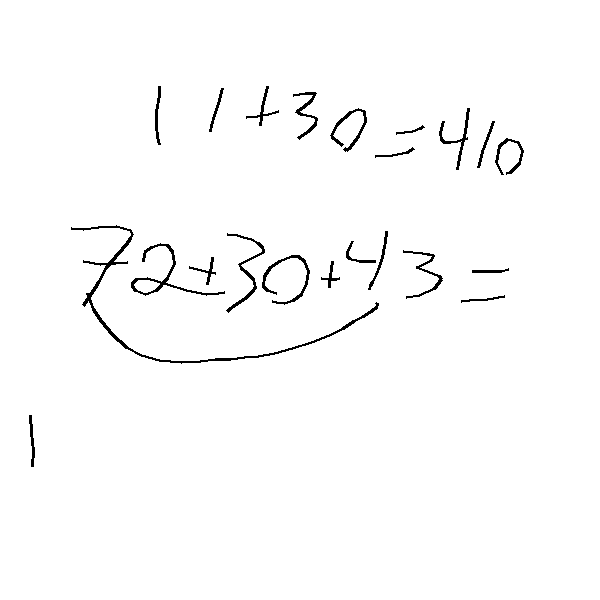 11+30=410
72+30+43=
1